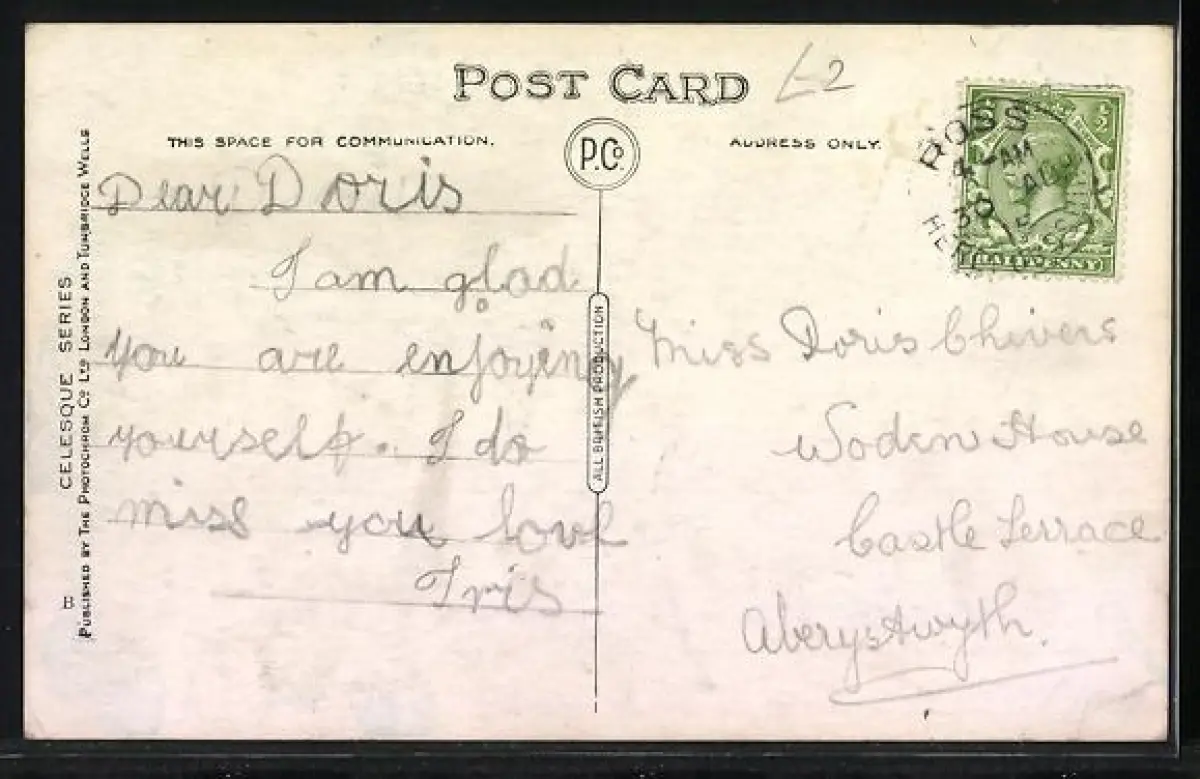 POST CARD
L2
THIS SPACE FOR COMMUNICATION.
ADDRESS ONLY.
P.Co
Dear Doris
I am glad
you are enjoying
yourself. I do
miss you love
Iris
Miss Doris Chivers
Woden House
Castle Terrace
Aberystwyth.
ALL BRITISH PRODUCTION
CELESQUE SERIES
PUBLISHED BY THE PHOTOCHROM CO. LTD LONDON AND TUNBRIDGE WELLS
B
ROSS
AM
30 AU
HALFPENNY